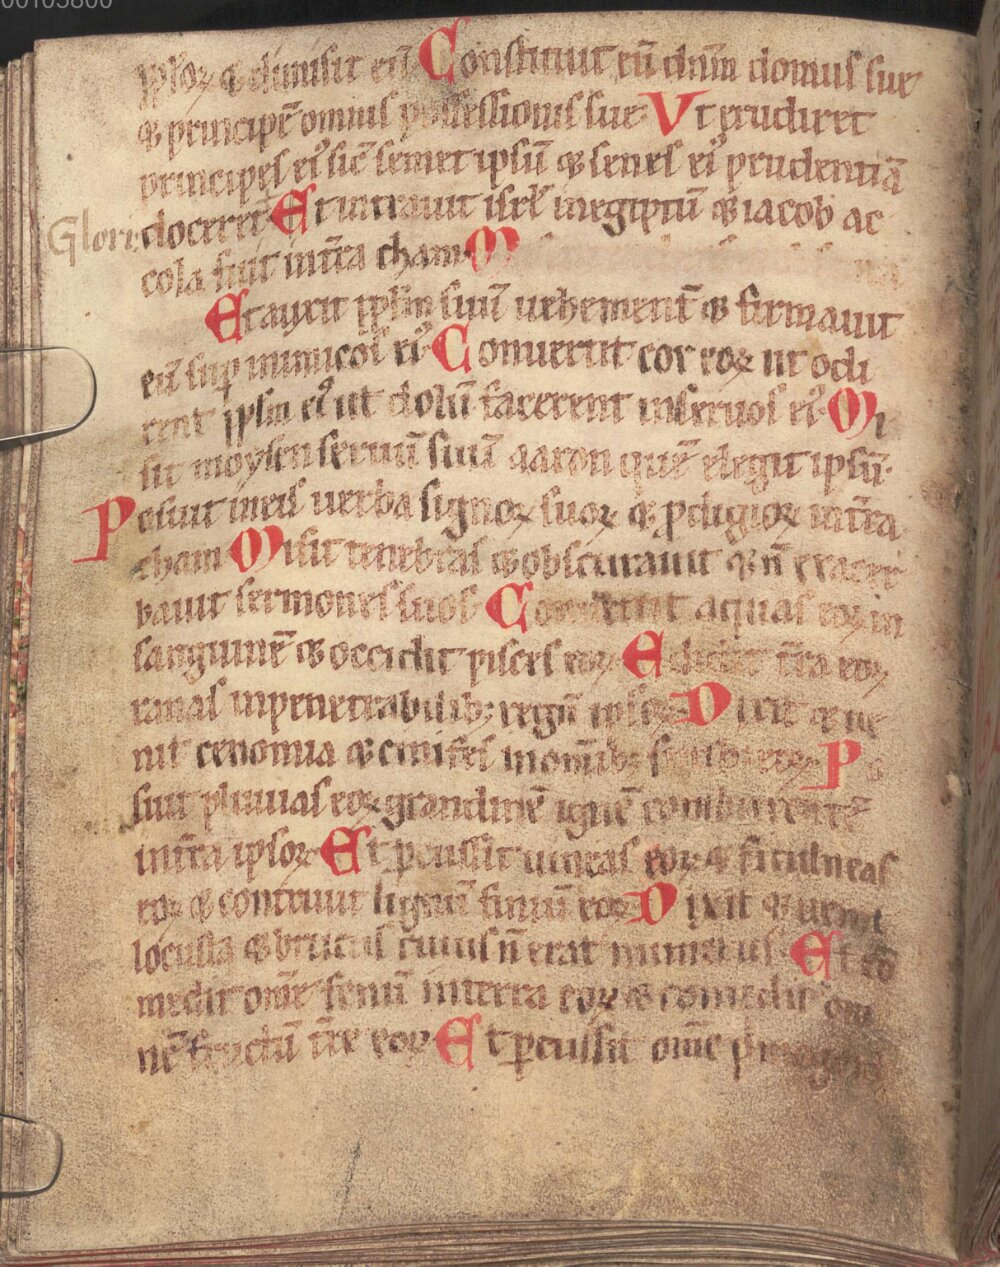 00105800
pploꝝ & dimisit eū Constituit eū dn̄m domus sue
& principē omnis possessionis sue Vt erudiret
principes eiꝰ sic̄ semet ipsū & senes eiꝰ prudentiā
doceret Et intrauit isrl̄ inegiptū & iacob ac
Glori
cola fuit int̄ra cham M
Et auxit ppl̄m suū uehement̄ & firmauit
eū sup inimicos eiꝰ Conuertit cor eoꝝ ut odi
rent ppl̄m eiꝰ ut dolū facerent inseruos eiꝰ Mi
sit moysen seruū suū aaron quē elegit ipsū
Posuit ineis uerba signoꝝ suoꝝ & ꝓdigioꝝ int̄ra
cham Misit tenebras & obscurauit & n̄ exacer
bauit sermones suos Conuertit aquas eoꝝ in
sanguinē & occidit pisces eoꝝ Edidit t̄ra eoꝝ
ranas inpenetrabilibꝫ regū ipsoꝝ Dixit & ue
nit cenomia & cinifes inom̄ibꝫ finibus eoꝝ Po
suit pluuias eoꝝ grandinē ignē conburentē
int̄ra ipsoꝝ Et ꝑcussit uineas eoꝝ & ficulneas
eoꝝ & contriuit lignū finiū eoꝝ Dixit & uenit
locusta & brucus cuius n̄ erat numerus Et cō
medit om̄e fenū interra eoꝝ & comedit om
nē fructū t̄re eoꝝ Et ꝑcussit om̄e